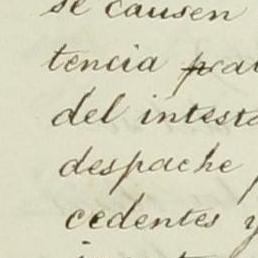 se causen
tencia
del
despache
cedentes y